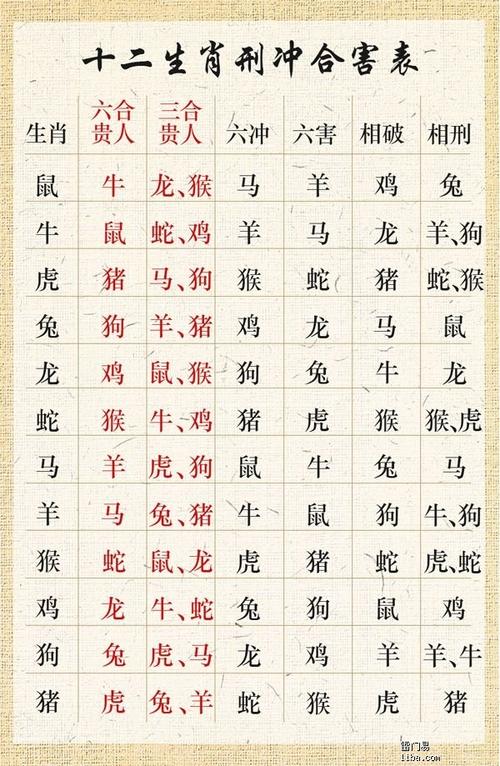 十二生肖刑冲合害表
生肖 六合贵人 三合贵人 六冲 六害 相破 相刑
鼠 牛 龙、猴 马 羊 鸡 兔
牛 鼠 蛇、鸡 羊 马 龙 羊、狗
虎 猪 马、狗 猴 蛇 猪 蛇、猴
兔 狗 羊、猪 鸡 龙 马 鼠
龙 鸡 鼠、猴 狗 兔 牛 龙
蛇 猴 牛、鸡 猪 虎 猴 猴、虎
马 羊 虎、狗 鼠 牛 兔 马
羊 马 兔、猪 牛 鼠 狗 牛、狗
猴 蛇 鼠、龙 虎 猪 蛇 虎、蛇
鸡 龙 牛、蛇 兔 狗 鼠 鸡
狗 兔 虎、马 龙 鸡 羊 羊、牛
猪 虎 兔、羊 蛇 猴 虎 猪
雷门易
liba.com